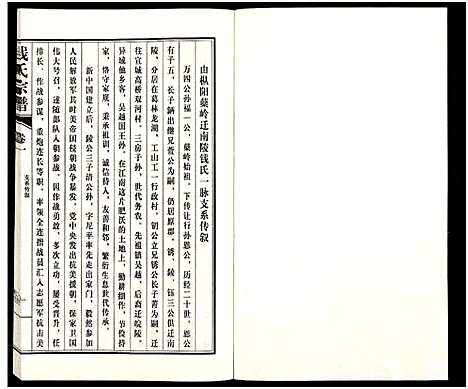 由枞阳蘖岭迁南陵钱氏一脉支系传叙
万四公孙福一公,蘖岭始祖。下传让行孙恩公,历经二十世,恩公
有子五,长子鏋出继兄萱公为嗣,仍居原郡。锈、陵、钰三公但迁南
陵,分居在葛林龙湖、工山工一行政村。钥公立兄锈公长子菁为嗣,迁
往宣城高桥双河村。三房子孙,世代务农。先祖镇吴越,后裔迁皖陵。
异域他乡客,吴越国王孙。在江南这片肥沃的土地上,勤耕细作,节俭持
家,恪守家规,秉承祖训,诚信待人,友善和邻,繁衍生息世代传承。
新中国建立后,陵公三子清公孙,字尼平率先走出家门,毅然参加
人民解放军其时美帝国侵朝战争暴发,党中央发出抗美援朝,保家卫国
伟大号召,遂随部队入朝参战。因作战勇敢,多次立功,屡受晋升,任
排长、作战参谋、重炮连长等职,率领全连指战员汇入志愿军抗击美
钱氏宗谱
卷一
支系传叙